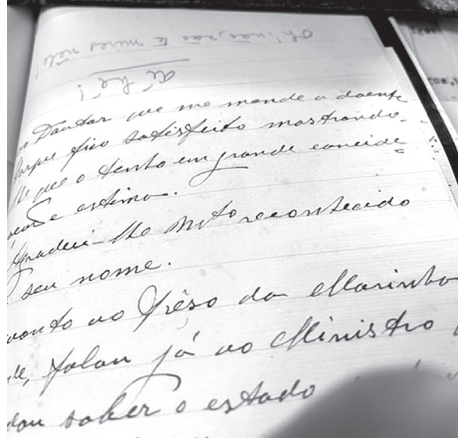 o Doutor que me mande o doente
porque fico satisfeito mostrando-
lhe que o tenho em grande conside-
e estima.
Agradeci-lhe mto reconhecido
seu nome.
ao Prêso da Marinha
falou já ao Ministro
saber o estado